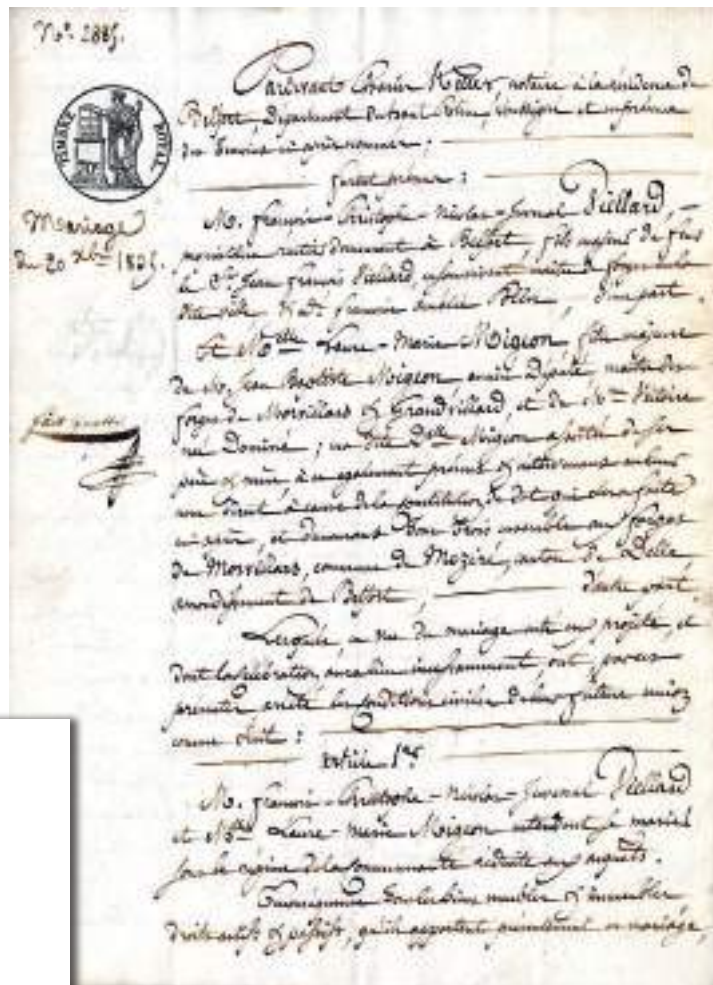 No. 2885.
Pardevant Keller, notaire à la résidence de
Belfort, Département du haut Rhin, soussigné et en présence
des témoins ci après nommés ;
TIMBRE ROYAL
furent présens :
Mariage
du 20 xbre 1835.
M. françois - Christophe - Nicolas - Juvenal Viellard,
propriétaire rentier demeurant à Belfort, fils majeur de feus
le Sr Jean françois Viellard, maître de forges
ville & de françoise, d'une part.
Et Melle Laure - Marie Migeon fille majeure
de M. Jean Baptiste Migeon ancien Député, maître des
forges de Morvillars & Grandvillard, et de Me
née Dominé ; la dite Delle Migeon assistée de ses
père & mère, à ce également présens & intervenans en leur
nom à cause de la constitution de dot qui sera faite
ci après, et demeurant tous trois ensemble aux forges
de Morvillars, commune de Meziré, canton de Delle
arrondissement de Belfort, d'autre part
Lesquels, en vue du mariage entre eux projeté, et
dont la célébration aura lieu incessamment, ont, par ces
présentes arrêté les conditions civiles de leur future union
comme suit :
Article 1er
M. françois - Christophe - Nicolas - Juvenal Viellard
et Melle Laure - Marie Migeon entendent se marier
sous le régime de la communauté réduite aux acquêts.
tous les biens meubles & immeubles
droits actifs & passifs, qu'ils apportent présentement en mariage,